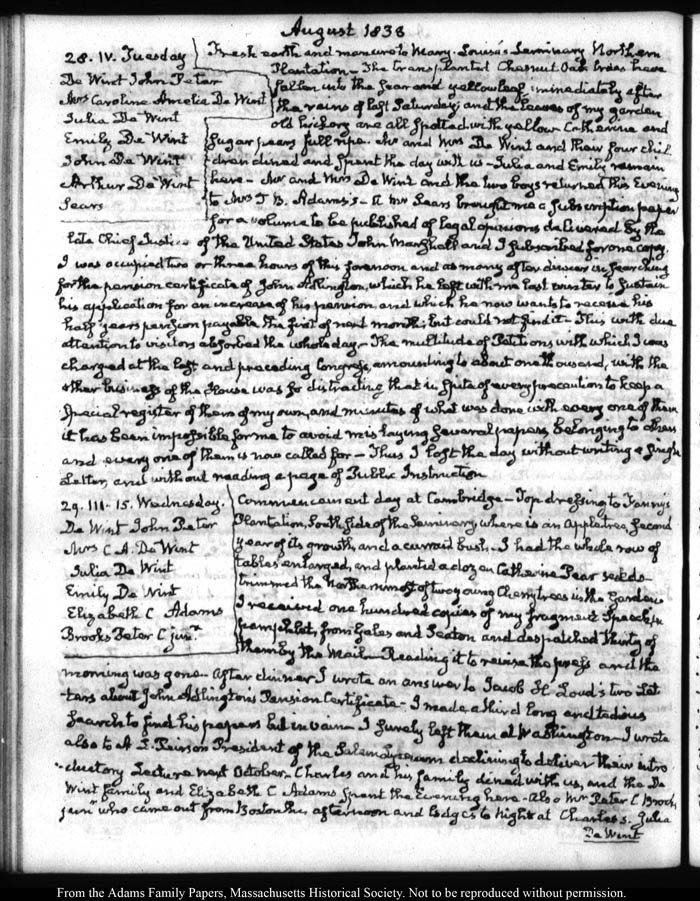 August 1838
28. IV. Tuesday
De Wint John Peter
Mrs Caroline Amelia De Wint
Julia De Wint
Emily De Wint
John De Wint
Arthur De Wint
Sears
Fresh earth and manure to Mary-Louisa's Seminary Northern
Plantation – The transplanted Chesnut Oak trees have
fallen into the sear and yellow leaf immediately after
the rains of last Saturday, and the leaves of my garden
old hickory are all spotted with yellow Catherine and
Sugar pears full ripe. Mr and Mrs De Wint and their four chil
dren dined and spent the day with us – Julia and Emily remain
here – Mr and Mrs De Wint and the two boys returned this Evening
to Mrs T. B. Adams's – A Mr Sears brought me a subscription paper
for a volume to be published of legal opinions delivered by the
late Chief Justice of the United States John Marshall and I subscribed for one copy.
I was occupied two or three hours of this forenoon and as many after dinner in searching
for the pension certificate of John Adlington, which he left with me last winter to sustain
his application for an increase of his pension and which he now wants to receive his
half years pension payable the first of next month; but could not find it – This with due
attention to visitors absorbed the whole day – The multitude of Petitions with which I was
charged at the last and preceding Congress, amounting to about one thousand, with the
other business of the House was so distracting that in spite of every precaution to keep a
special register of them of my own, and minutes of what was done with every one of them
it has been impossible for me to avoid mislaying several papers, belonging to others
and every one of them is now called for – Thus I lost the day without writing a single
Letter, and without reading a page of Public Instruction
29. III. 15. Wednesday.
De Wint John Peter
Mrs C. A. De Wint
Julia De Wint
Emily De Wint
Elizabeth C Adams
Brooks Peter C junr
Commencement day at Cambridge – Top dressing to Fanny's
Plantation, South side of the Seminary where is an Appletree, second
year of its growth, and a currant bush – I had the whole row of
tables enlarged, and planted a dozen Catherine Pear seeds –
trimmed the northernmost of two young Cherrytrees in the Garden
I received one hundred copies of my fragment Speech, in
pamphlet, from Gales and Seaton and despatched thirty of
them by the Mail – Reading it to revise the press and the
morning was gone – After dinner I wrote an answer to Jacob H. Loud's two Let
-ters about John Adlington's Pension Certificate – I made a third long and tedious
search to find his papers but in vain – I surely left them at Washington – I wrote
also to A. L. Peirson President of the Salem Lyceum declining to deliver their intro
-ductory Lecture next October – Charles and his family dined with us, and the De
Wint family and Elizabeth C Adams spent the Evening here – Also Mr Peter C Brooks
junr who came out from Boston this afternoon and lodges to night at Charles's. Julia
De Wint
From the Adams Family Papers, Massachusetts Historical Society. Not to be reproduced without permission.